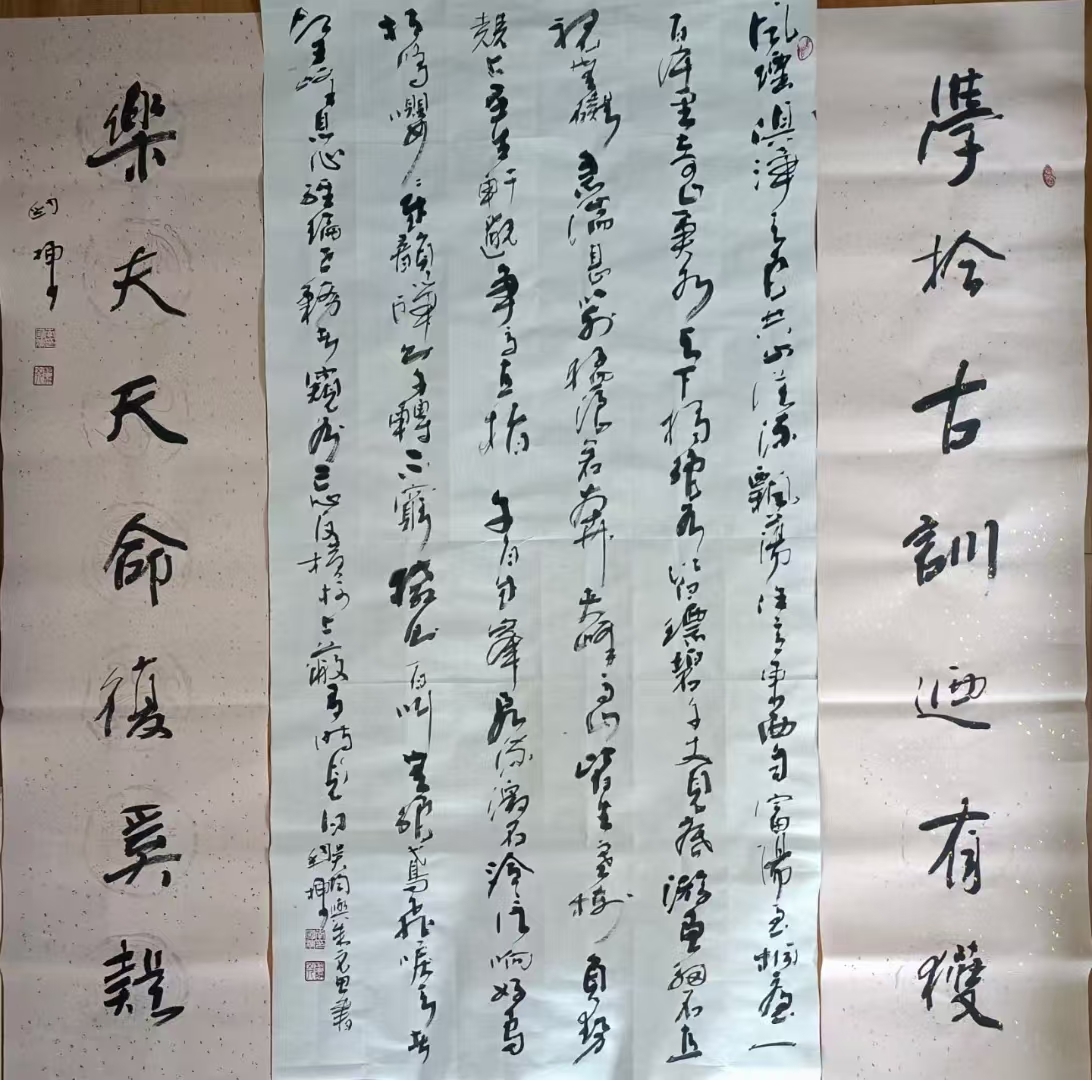 學扵古訓迺有獲
風煙俱淨天色共山從流飄蕩任意東西自富陽至桐廬一
百許里奇山異水天下獨絕水皆縹碧千丈見底游魚細石直
視無礙急湍甚箭猛浪若奔夾峰高山皆生寒樹負勢
競上互生軒邈爭高直指千百成峯泉流激石泠作响好鳥
相鳴嚶〻成韻蟬則千轉不窮猿則百叫無絕鳶飛唳天者
望峰息心經綸世務者窺谷忘反橫柯上蔽有時見日吳均與朱元思書
樂夫天命復奚疑